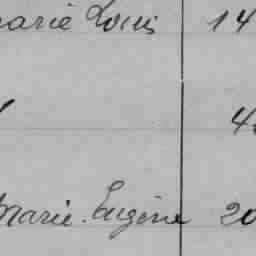 Marie Louis 14
4
Marie. Eugène 20